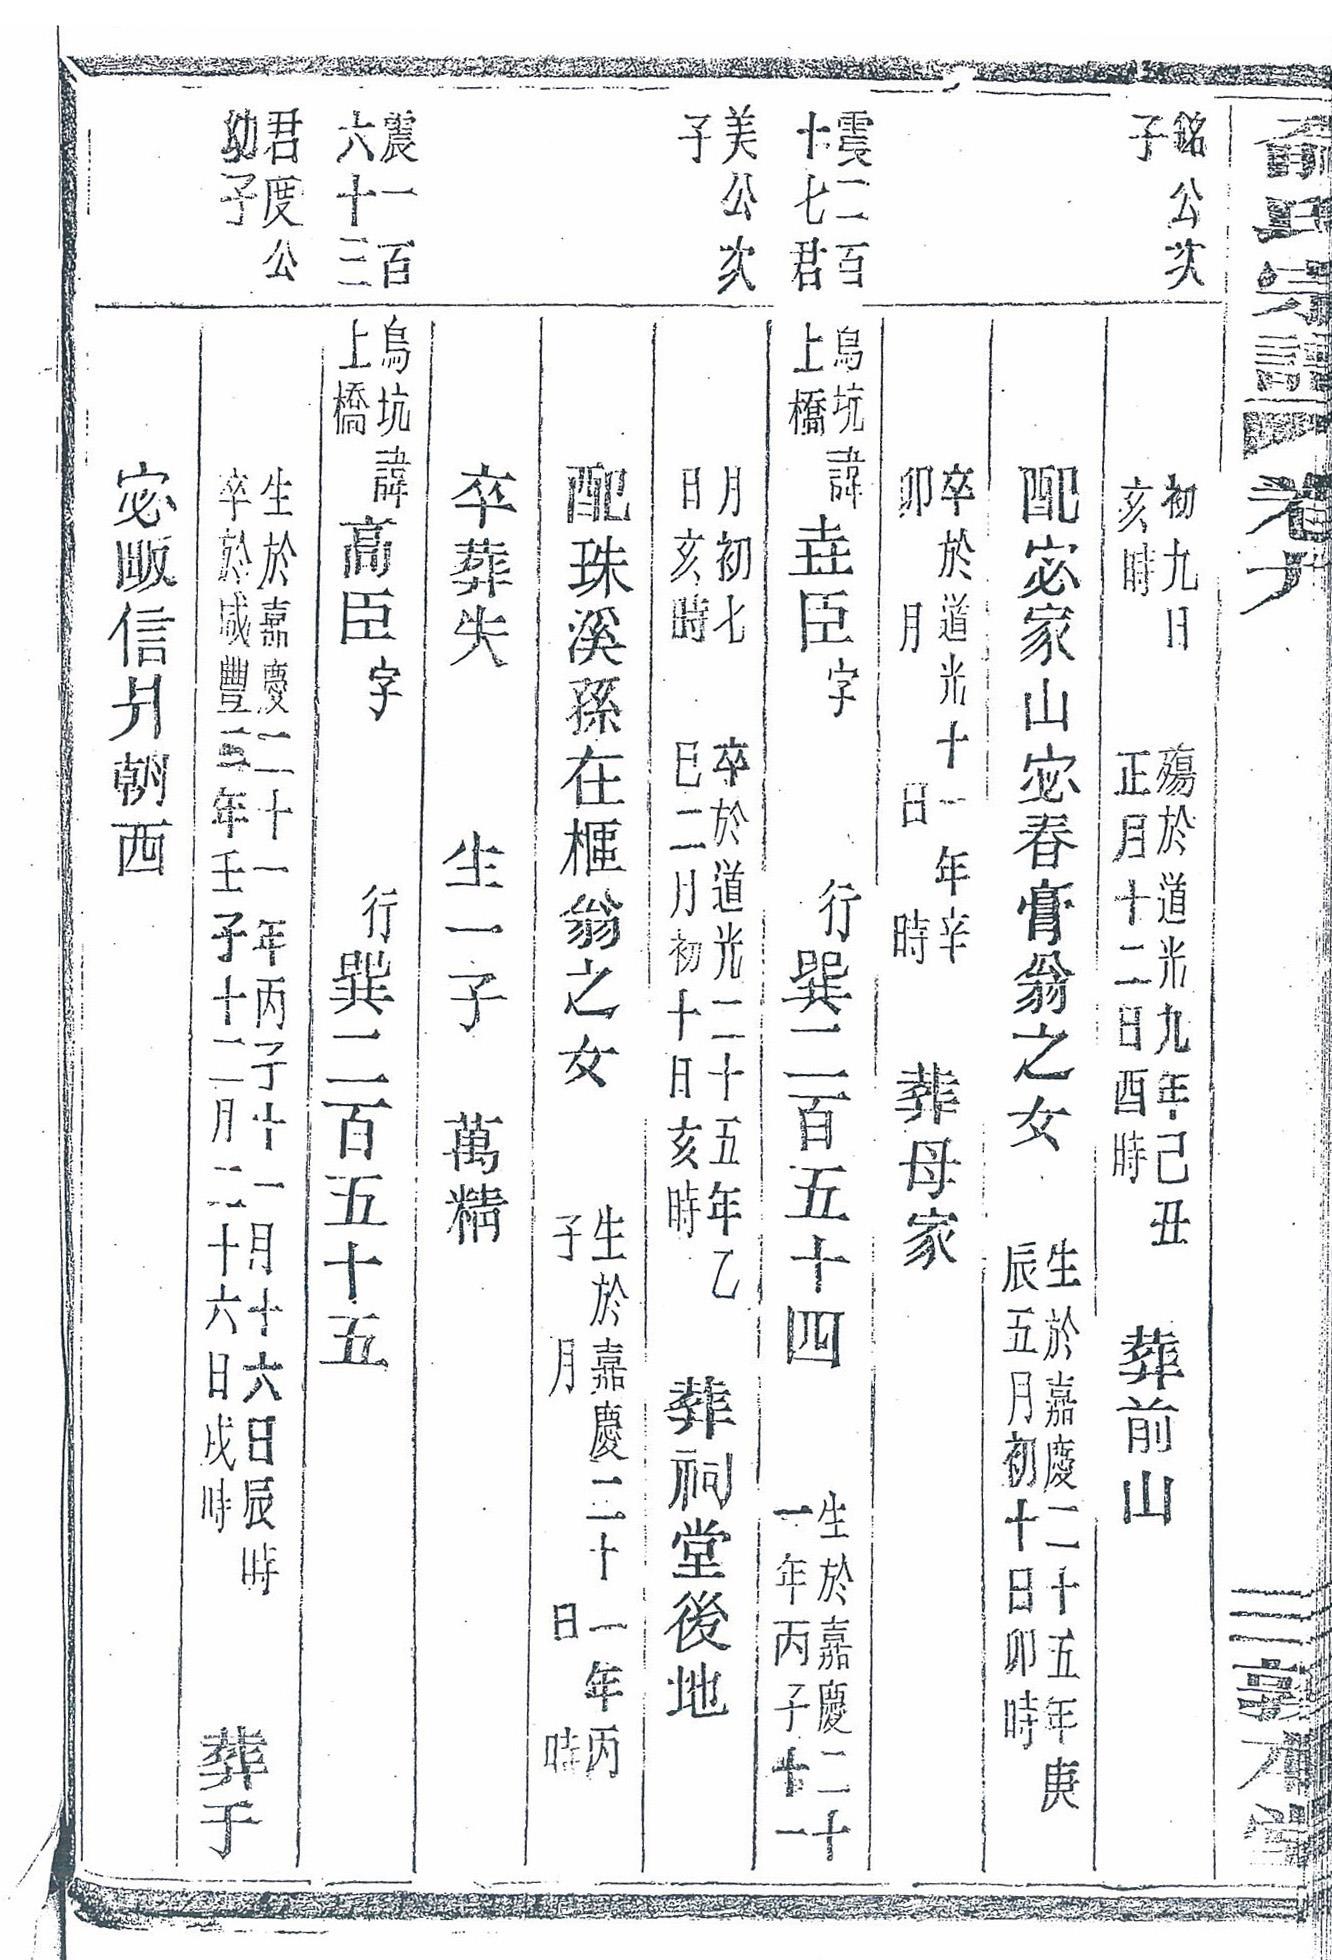 俞氏宗譜
卷
敦本堂
銘公次
子
初九日
亥時
殤於道光九年己丑
正月十二日酉時
葬前山
配宓家山宓春膏翁之女
生於嘉慶二十五年庚
辰五月初十日卯時
卒於道光十一年辛
卯 月 日 時
葬母家
震二百
十七君
美公次
子
烏坑
上橋
諱
垚臣
字
行
巽二百五十四
生於嘉慶二十
一年丙子十一
月初七
日亥時
卒於道光二十五年乙
巳二月初十日亥時
葬祠堂後地
配珠溪孫在樞翁之女
生於嘉慶二十一年丙
子 月 日 時
卒葬失
生一子
萬精
震一百
六十三
君度公
幼子
烏坑
上橋
諱
高臣
字
行
巽二百五十五
生於嘉慶二十一年丙子十一月十六日辰時
卒於咸豐二年壬子十二月二十六日戌時
葬于
宓畈信爿朝西